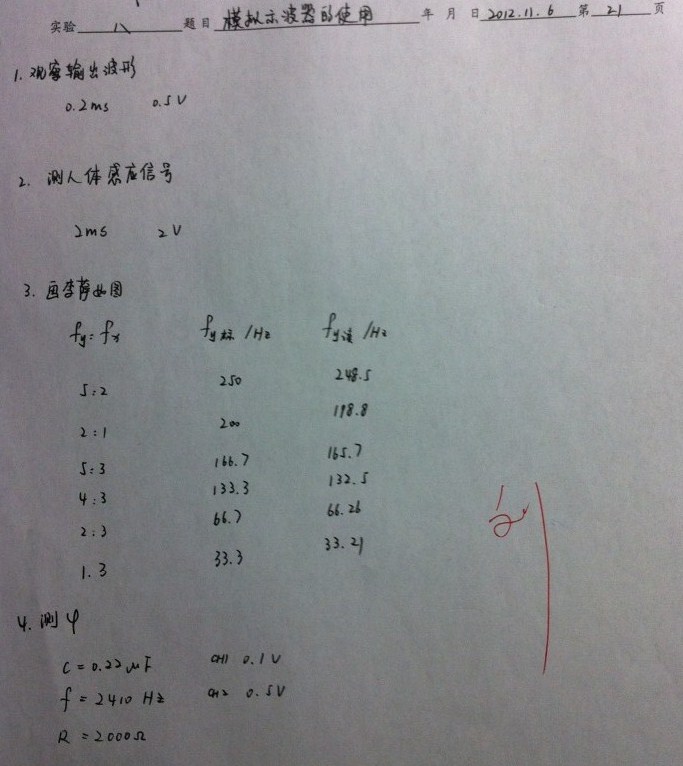 实验 八 题目 模拟示波器的使用 年 月 日 2012.11.6 第 21 页
1. 观察输出波形
0.2ms 0.5V
2. 测人体感应信号
2ms 2V
3. 画李萨如图
fy:fx fy标/Hz fy读/Hz
5:2 250 248.5
2:1 200 198.8
5:3 166.7 165.7
4:3 133.3 132.5
2:3 66.7 66.26
1.3 33.3 33.21
4. 测φ
C=0.22μF CH1 0.1V
f=2410Hz CH2 0.5V
R=2000Ω